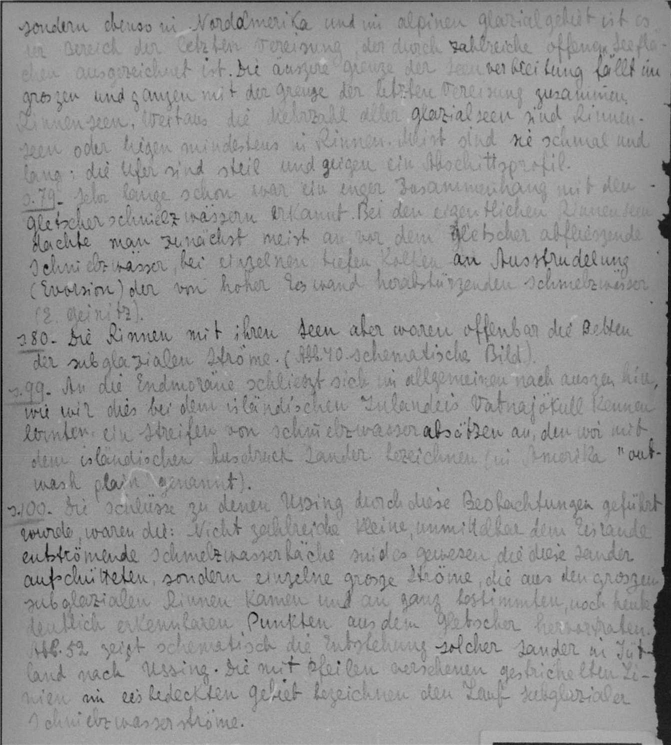 sondern ebenso in Nordamerika und im alpinen glazialgebiet ist es
der Bereich der letzten Vereisung, der durch zahlreiche offene Seeflä-
chen ausgezeichnet ist. Die äuszere grenze der Seenverbreitung fällt im
groszen und ganzen mit der grenze der letzten Vereisung zusammen.
Rinnenseen. Weitaus die Mehrzahl aller glazialseen sind Rinnen-
seen oder liegen mindestens in Rinnen. Meist sind sie schmal und
lang; die Ufer sind steil und zeigen ein Abschnittsprofil.
s.79- Sehr lange schon war ein enger Zusammenhang mit den
gletscherschmelzwässern erkannt. Bei den eigentlichen Rinnenseen
dachte man zunächst meist an vor dem gletscher abflieszende
Schmelzwässer, bei einzelnen tiefen Kolken an Ausstrudelung
(Evorsion) der von hoher Eiswand herabstürzenden Schmelzwässer
(E. geinitz).
s.80- Die Rinnen mit ihren Seen aber waren offenbar die Betten
der subglazialen Ströme. (Abb.40. schematische Bild).
s.99- An die Endmoräne schlieszt sich im allgemeinen nach auszen hin,
wie wir dies bei dem isländischen Inlandeis Vatnajökull kennen
lernten, ein Streifen von schmelzwasserabsätzen an, den wir mit
dem isländischen Ausdruck Sander bezeichnen (in Amerika "out-
wash plain genannt).
s.100- Die schlüsse zu denen Ussing durch diese Beobachtungen geführt
wurde, waren die: Nicht zahlreiche kleine, unmittelbar dem Eisrande
entströmende schmelzwasserbäche sind es gewesen, die diese Sander
aufschütteten, sondern einzelne grosze Ströme, die aus den groszen
subglazialen Rinnen kamen und an ganz bestimmten, noch heute
deutlich erkennbaren Punkten aus dem gletscher hervortraten.
Abb.52 zeigt schematisch die Entstehung solcher Sander in Jüt-
land nach Ussing. Die mit Pfeilen versehenen gestrichelten Li-
nien im eisbedeckten gebiet bezeichnen den Lauf subglazialer
Schmelzwasserströme.